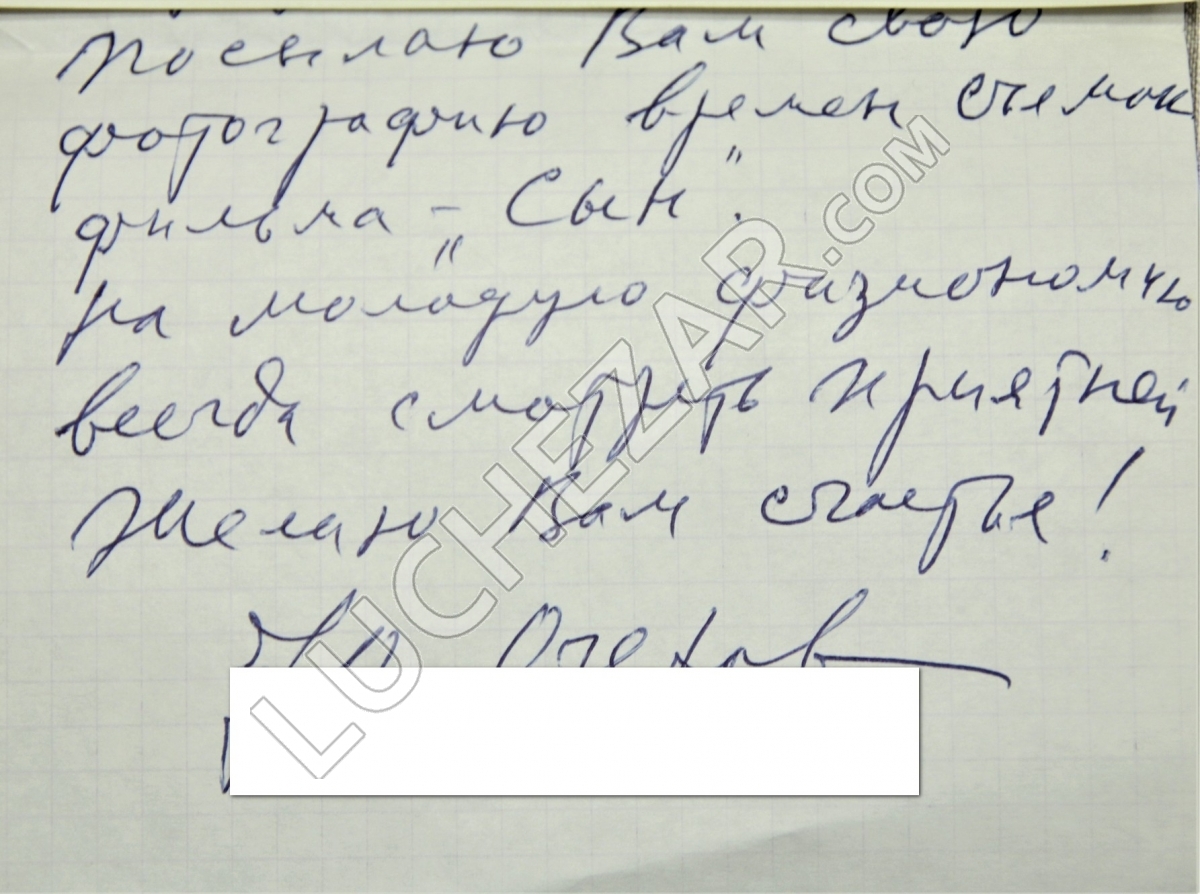 посылаю Вам свою
фотографию времен съемок
фильма - „Сын".
На молодую физиономию
всегда смотреть приятней
Желаю Вам счастья!
LUCHEZAR.COM